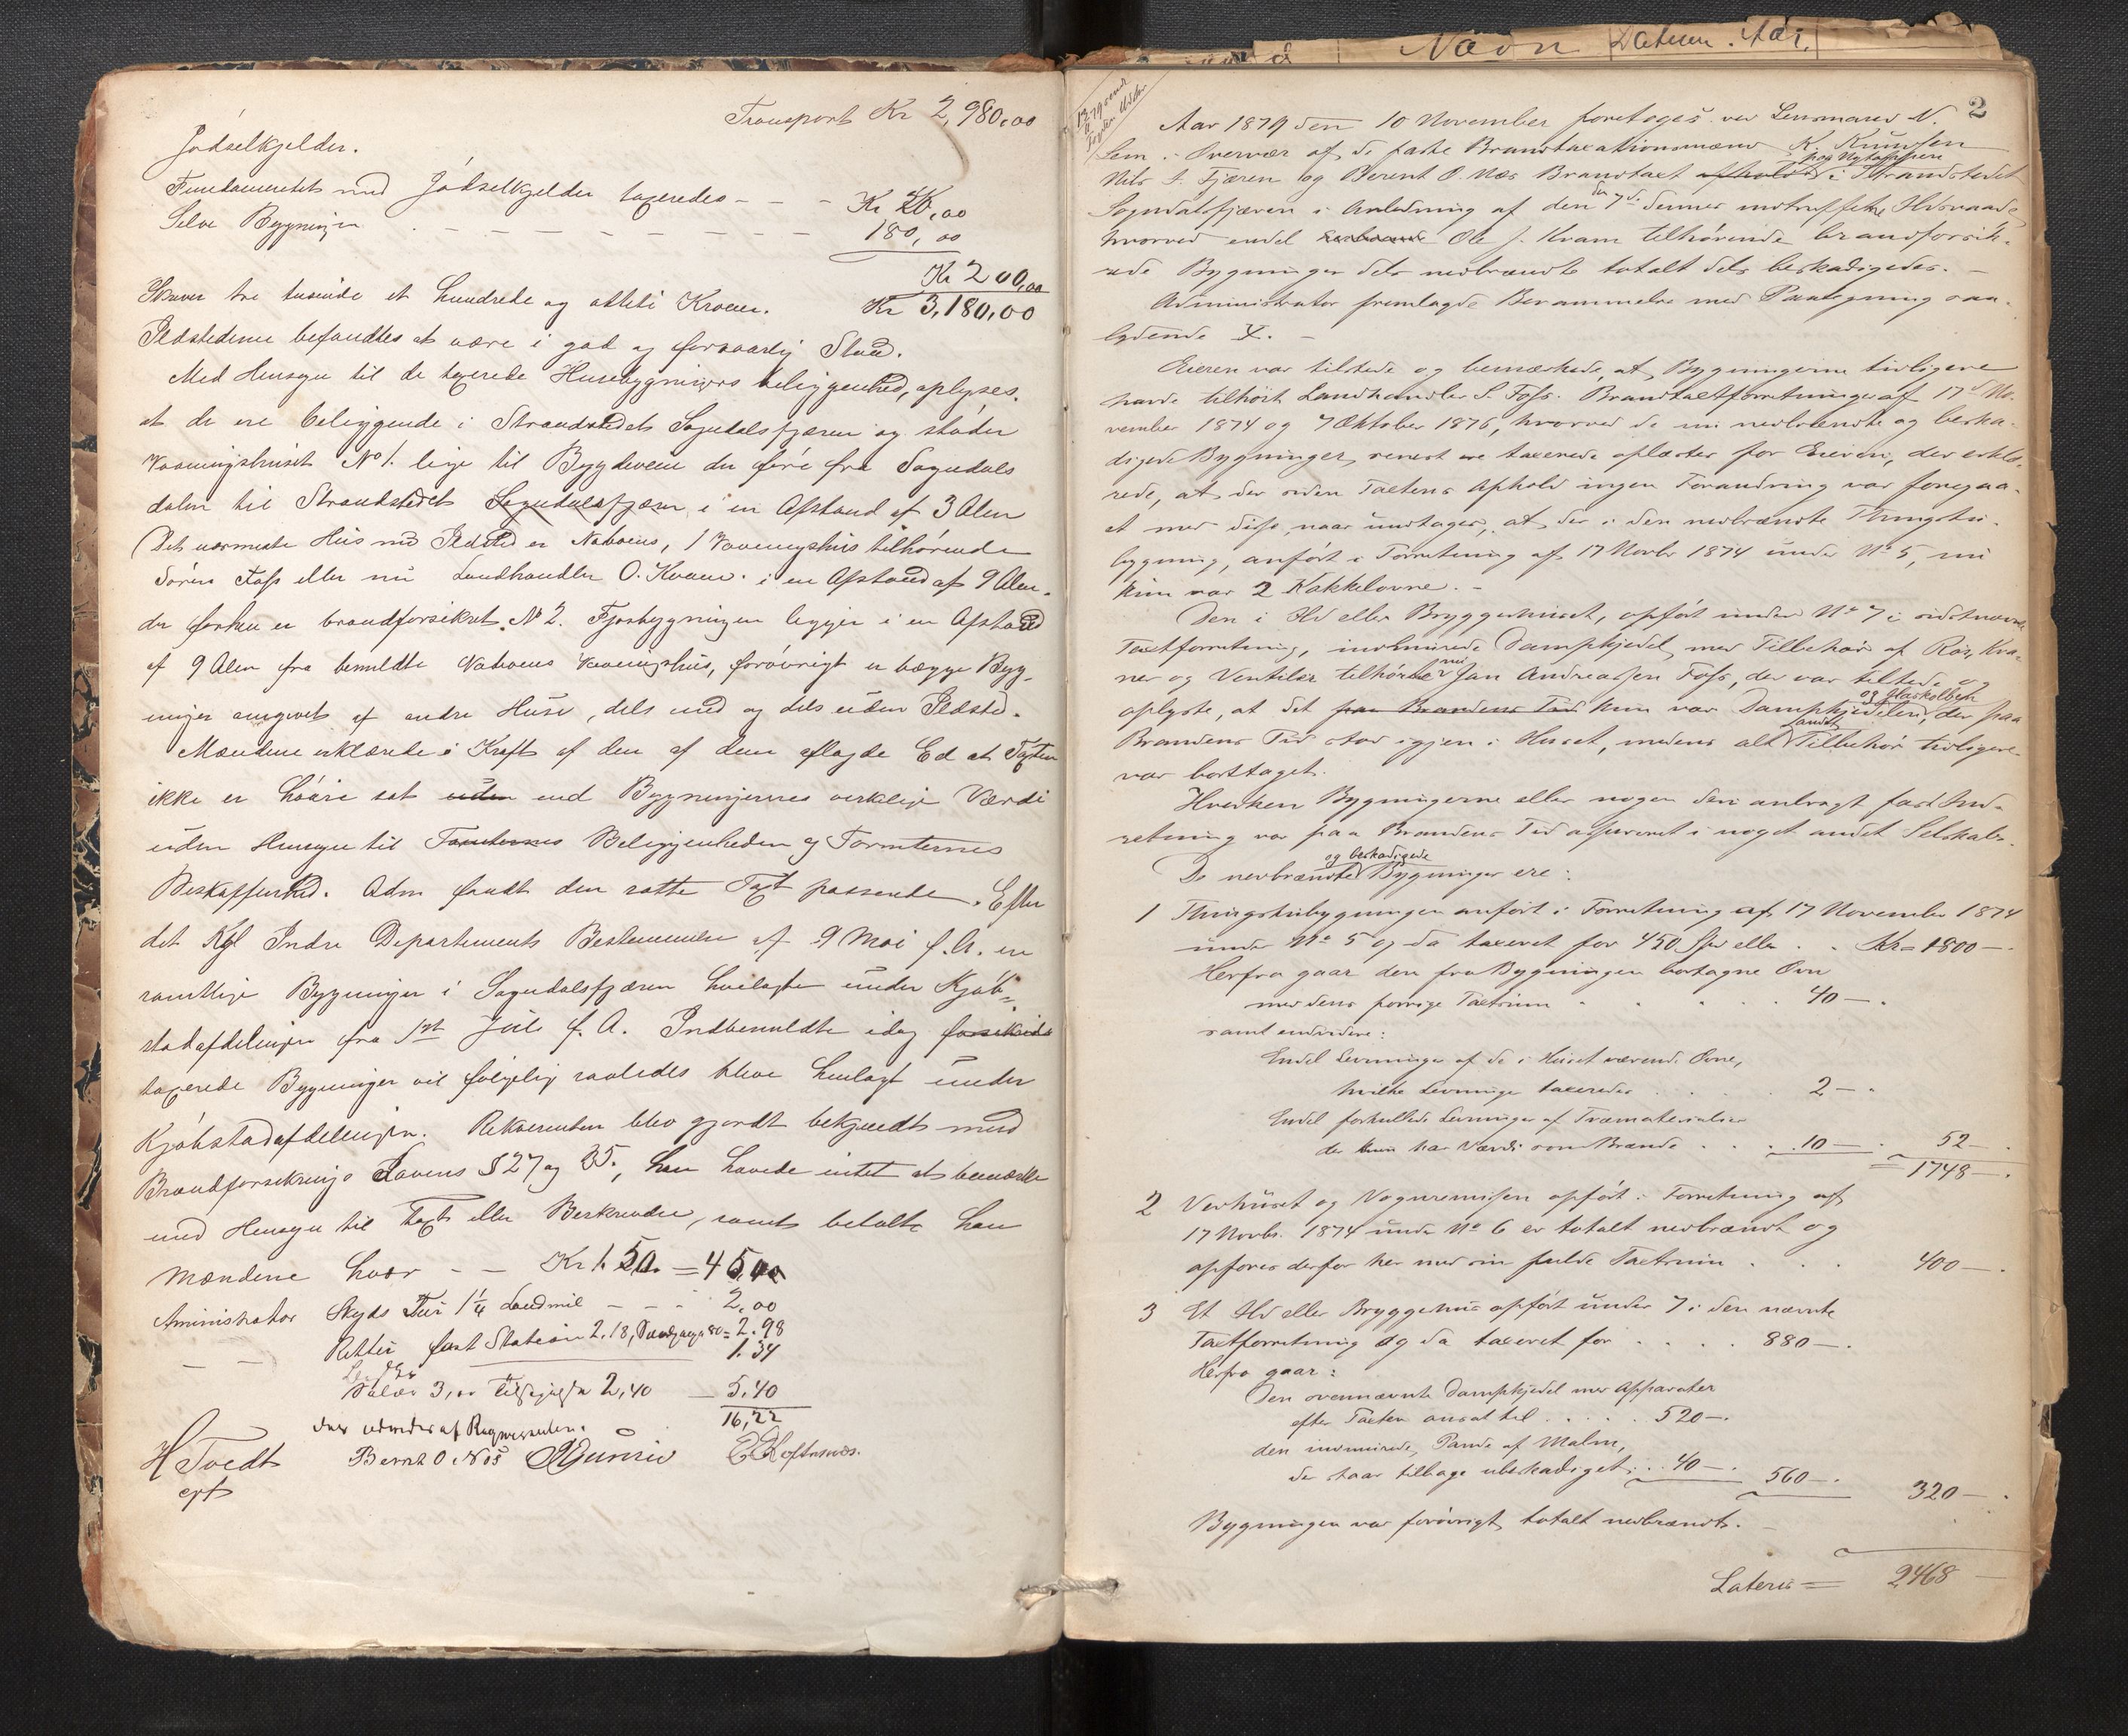 Transport Kr 2,980,00
Jødselkjelder.
Fundamentet med Jødselkjelder taxeredes - - - Kr 20,00
Selve Bygningen - - - - - - - - - 180,00
Kr 200,00
Skriver tre tusinde et hundrede og otteti Kroner. Kr 3,180,00
Ildstederne befandtes at være i god og forsvarlig Stand.
Med Hensyn til de taxerede Husebygningers beliggenhed, oplyses,
at de ere beliggende i Strandstedet Sogndalsfjæren og støder
Vaaningshuset No 1. lige til Bygdeveien der fører fra Sogndals
dalen til Strandstedet Sogndalsfjæren i en Afstand af 3 Alen
Det nærmeste Hus med Ildsted er Naboens, 1 Vaaningshus tilhørende
Sören Foss eller nu Landhandler O. Kvam. i en Afstand af 9 Alen.
der forhen er brandforsikret. No 2. Fjøsbygningen ligger i en Afstand
af 9 Alen fra bemeldte Naboens Vaaningshus, forøvrigt er begge Byg-
ninger omgivet af andre Huse, dels med og dels uden Ildsted.
Mændene erklærede i Kraft af den af dem aflagde Ed at Taxten
ikke er høiere sat uden end Bygningernes verklige Værdi
uden Hensyn til Tomternes Beliggenheden og Tomternes
Beskaffenhed. Adm fandt den satte Taxt passende. Efter
det Kgl Indre Departements Bestemmelse af 9 Mai f. A. ere
samtlige Bygninger i Sogndalsfjæren henlagte under Kjøb-
stadafdelingen fra 1st Juli f. A. Indbemeldte idag
taxerede Bygninger vil følgelig saaledes blive henlagt under
Kjøbstadafdelingen. Rekvirenten blev gjordt bekjendt med
Brandforsikrings Lovens § 27 og 35., han havde intet at bemærke
med Hensyn til Taxt eller Beskrivelse, samt betalte han
Mændene hver - - Kr 1.50. = 4 50
Aministrator Skyds Tur 1 1/4 Landmil - - - 2,00
- - Retur fast Station 2.18, 80 = 2.98
1.34
3,00 2,40 - 5.40
16,22
der udredes af Reqvirenten.
H Tvedt Bernt O. Nøs
Navn Datum. Aar.
2
Aar 1879 den 10 November foretoges ved Lensmand N.
Sem i Overvær af de faste Brandtaxationsmænd K. Knudsen
Nils J. Fjæren og Berent O. Næs Brandtaxt afholdt i Strandstedet
Sogndalsfjæren i Anledning af den den 7de dennes indtrufne Ildsvaade
hvorved endel Ole J. Kvam tilhørende brandforsik-
rede Bygninger dels nedbrændte totalt dels beskadigedes. -
Administrator fremlagde Berammelse med Paategning saa-
lydende X. -
Eieren var tilstede og bemærkede, at Bygningerne tidligere
havde tilhørt Landhandler S. Foss. Brandtaxtforretninger af 17de No-
vember 1874 og 7 Oktober 1876, hvorved de nu nedbrændte og beska-
digede Bygninger, senest ere taxerede oplæstes for Eieren, der erklæ-
rede, at der siden Taxtens Afhold ingen Forandring var foregaa-
et med disse, naar undtages, at der i den nedbrændte Thingstu-
bygning, anført i Forretning af 17 Novbr 1874 under No 5, nu
kun var 2 Kakkelovne. -
Den i Ild eller Bryggerhuset, opført under No 7 i sidstnævnte
Taxtforretning, indmurede Dampkjedel, med Tilbehør af Rør, Kra-
ner og Ventiler tilhører nu Jan Andreassen Foss, der var tilstede og
oplyste, at det paa Brandens Tid kun var Dampkjedelen, og Glaskolben der paa
Brandens Tid stod igjen i Huset, medens alt andet Tilbehør tidligere
var borttaget.
Hverken Bygningerne eller nogen deri anbragt fast Ind-
retning var paa Brandens Tid assureret i noget andet Selskab.
De nedbrændte og beskadigede Bygninger ere:
1 Thingstubygningen anført i Forretning af 17 November 1874
under No 5 og da taxeret for 450 Spd eller . . Kr = 1800 -.
Herfra gaar den fra Bygningen borttagne Ovn
med dens forrige Taxtsum . . . . . 40 -.
samt endvidere:
Endel Levninger af de i Huset værende Ovne,
hvilke Levninger taxeredes . . . . 2 -.
Endel forkullede Levninger af Træmaterialier
der kun har Værdi som Brænde . . . 10 -. 52 -.
1748 -.
2 Vedhuset og Vognremisen opført i Forretning af
17 Novbr. 1874 under No 6 er totalt nedbrændt og
opføres derfor her med sin fulde Taxtsum . . . 400 -.
3 Et Ild eller Bryggehus opført under 7 i den nævnte
Taxtforretning og da taxeret for . . . . 880 -.
Herfra gaar:
Den ovennævnte Dampkjedel med Apparater
efter Taxten ansat til . . . . 520 -.
den indmurede Pande af Malm,
der staar tilbage ubeskadiget . . 40 -. 560 -. 320 -.
Bygningen var forøvrigt totalt nedbrændt. -
Lateris = 2468 -